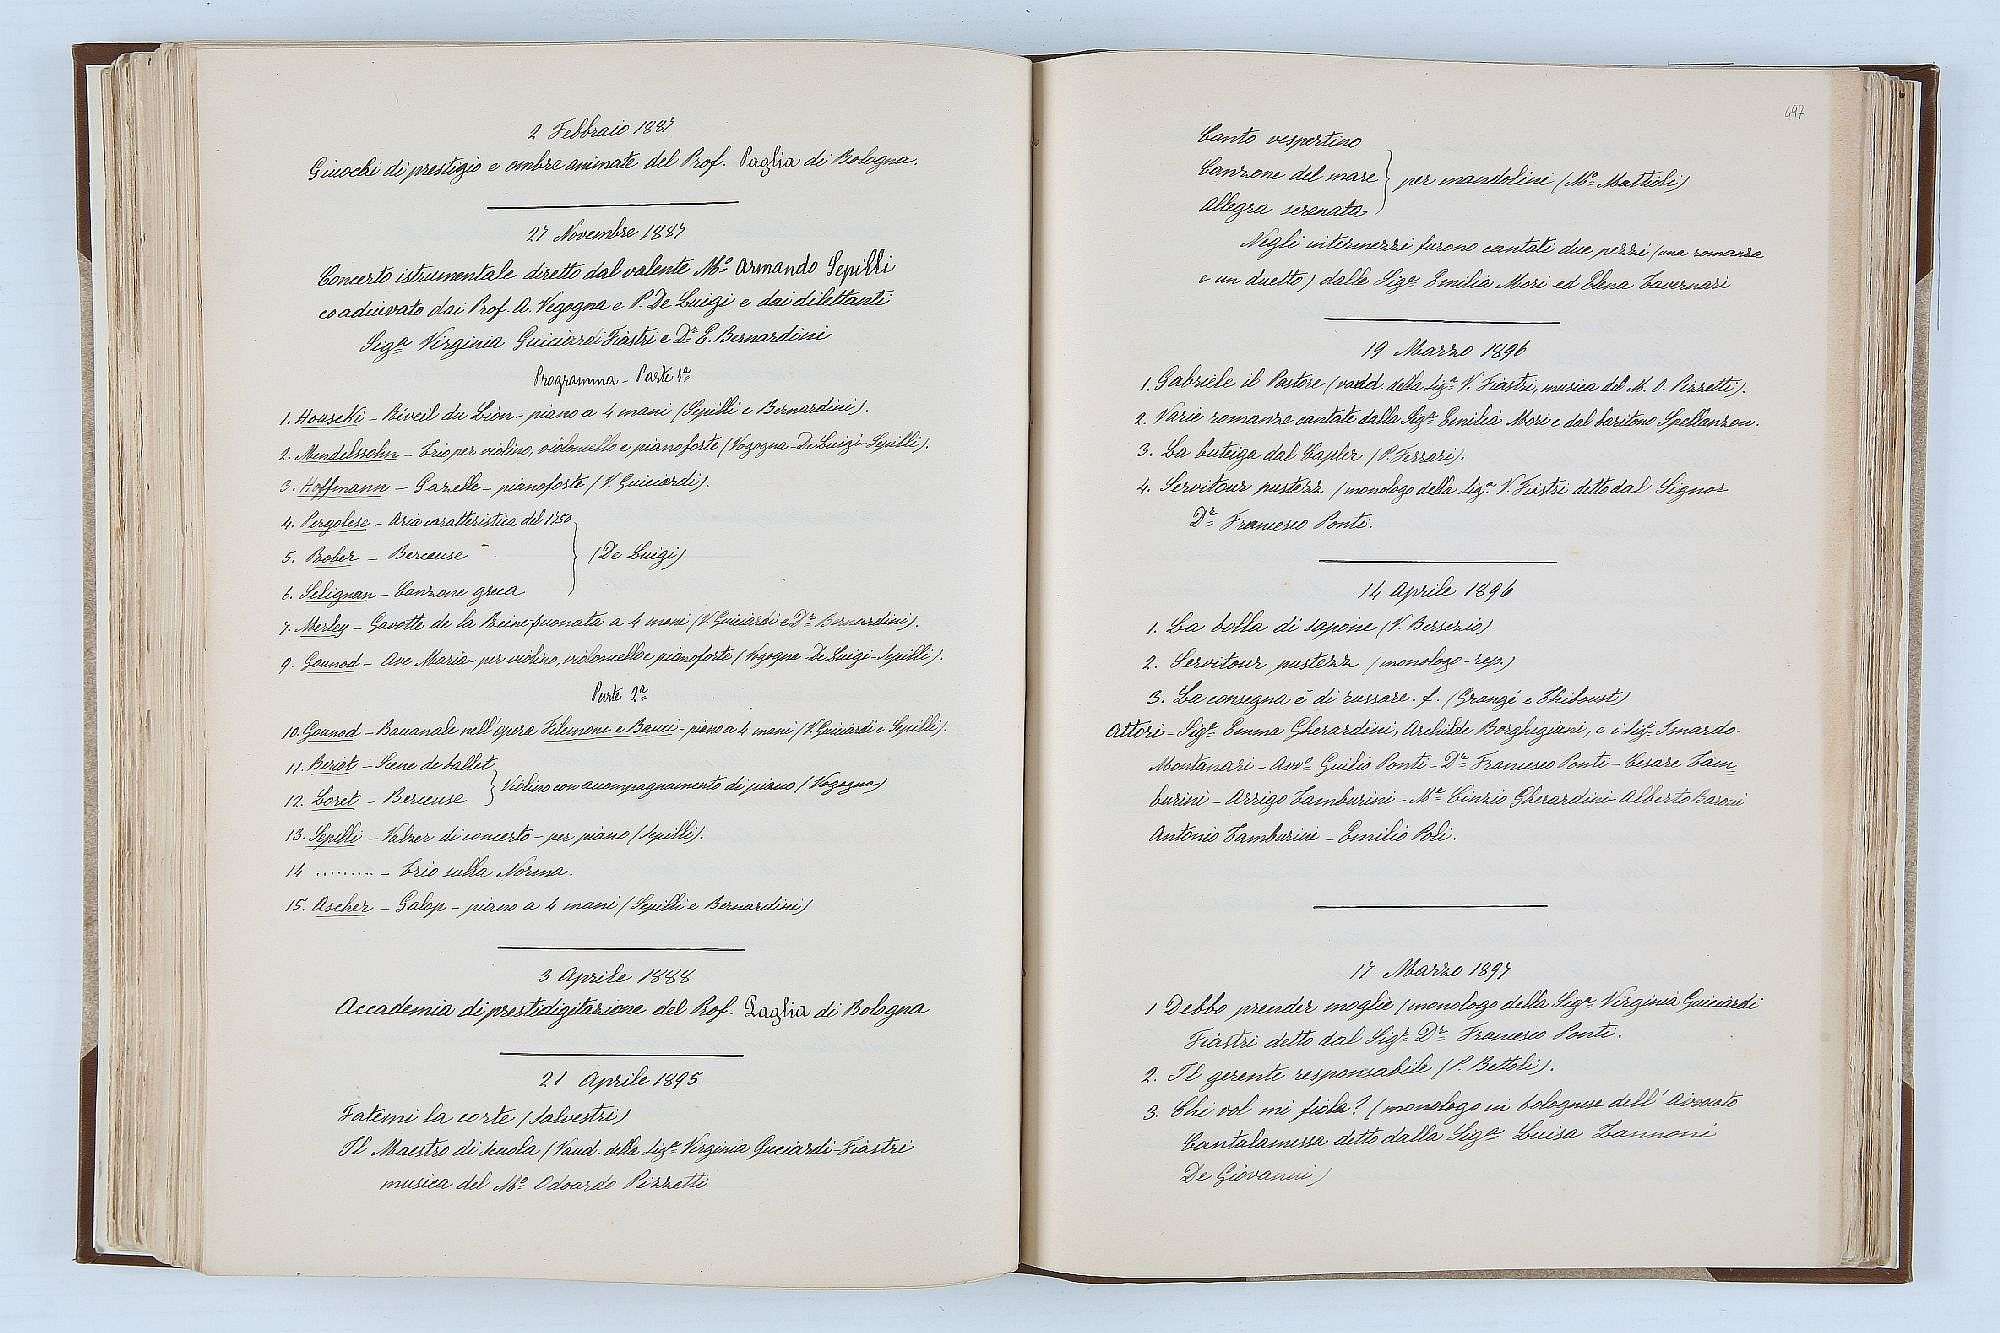 2 Febbraio 1887
Giuochi di prestigio e ombre animate del Prof. Paglia di Bologna.
27 Novembre 1887
Concerto istrumentale diretto dal valente Mo Armando Sepilli
coadiuvato dai Prof. A. Vegogna e P. De Luigi e dai dilettanti
Sigra Virginia Guiciardi Fiastri e Dr E. Bernardini
Programma - Parte 1a
1. - Réveil du Lion - piano a 4 mani (Sepilli e Bernardini).
2. Mendelssohn - Trio per violino, violoncello e pianoforte (Vogogna - De Luigi - Sepilli).
3. Hoffmann - Gazelle - pianoforte (V. Guiciardi).
4. Pergolese - Aria caratteristica del 1750
5. Bober - Berceuse
(De Luigi)
6. Selignan - Canzone greca
7. Merley - Gavotte de la Reine suonata a 4 mani (V. Guiciardi e Dr Bernardini).
9. Gounod - Ave Maria - per violino, violoncello e pianoforte (Vogogna - De Luigi - Sepilli).
Parte 2a
10. Gounod - Baccanale nell'opera Filemone e Bauci - piano a 4 mani (V. Guiciardi e Sepilli).
11. Beriot - Scene de ballet
Violino con accompagnamento di piano (Vogogna)
12. Loret - Berceuse
13. Sepilli - Valzer di concerto - per piano (Sepilli).
14 ......... - Trio sulla Norma.
15. Ascher - Galop - piano a 4 mani (Sepilli e Bernardini)
3 Aprile 1888
Accademia di prestidigitazione del Prof. Paglia di Bologna
21 Aprile 1895
Fatemi la corte (Salvestri)
Il Maestro di scuola (Vaud. della Sigra Virginia Guiciardi-Fiastri
musica del Mo Odoardo Pizzetti
697
Canto vespertino
Canzone del mare
per mandolini (Mo Mattioli)
Allegra serenata
Negli intermezzi furono cantati due pezzi (una romanza
e un duetto) dalle Sigre Emilia Mori ed Elena Tavernari
19 Marzo 1896
1. Gabriele il Pastore (vaud. della Sigra V. Fiastri, musica del M. O. Pizzetti).
2. Varie romanze cantate dalla Sigra Emilia Mori e dal baritono Spellanzon.
3. La buteiga dal Capler (P. Ferrari).
4. Servitour pusterz (monologo della Sigra V. Fiastri detto dal Signor
Dr Francesco Ponti.
14 Aprile 1896
1. La bolla di sapone (V. Bersezio)
2. Servitour pusterz (monologo - rep.)
3. La consegna è di russare. f. (Grangé e Thiboust)
Attori - Sigre Emma Gherardini, Archilde Borghigiani, e i Sigri Isnardo
Montanari - Avvo Giulio Ponti - Dr Francesco Ponti - Cesare Tam-
burini - Arrigo Tamburini - Mo Cinzio Gherardini - Alberto Baroni
Antonio Tamburini - Emilio Poli.
17 Marzo 1897
1 Debbo prender moglie (monologo della Sigra Virginia Guiciardi
Fiastri detto dal Sigr Dr Francesco Ponti.
2. Il gerente responsabile (P. Bettoli).
3. Chi vol mi fiola? (monologo in bolognese dell' Avvocato
Cantalamessa detto dalla Sigra Luisa Zannoni
De Giovanni)